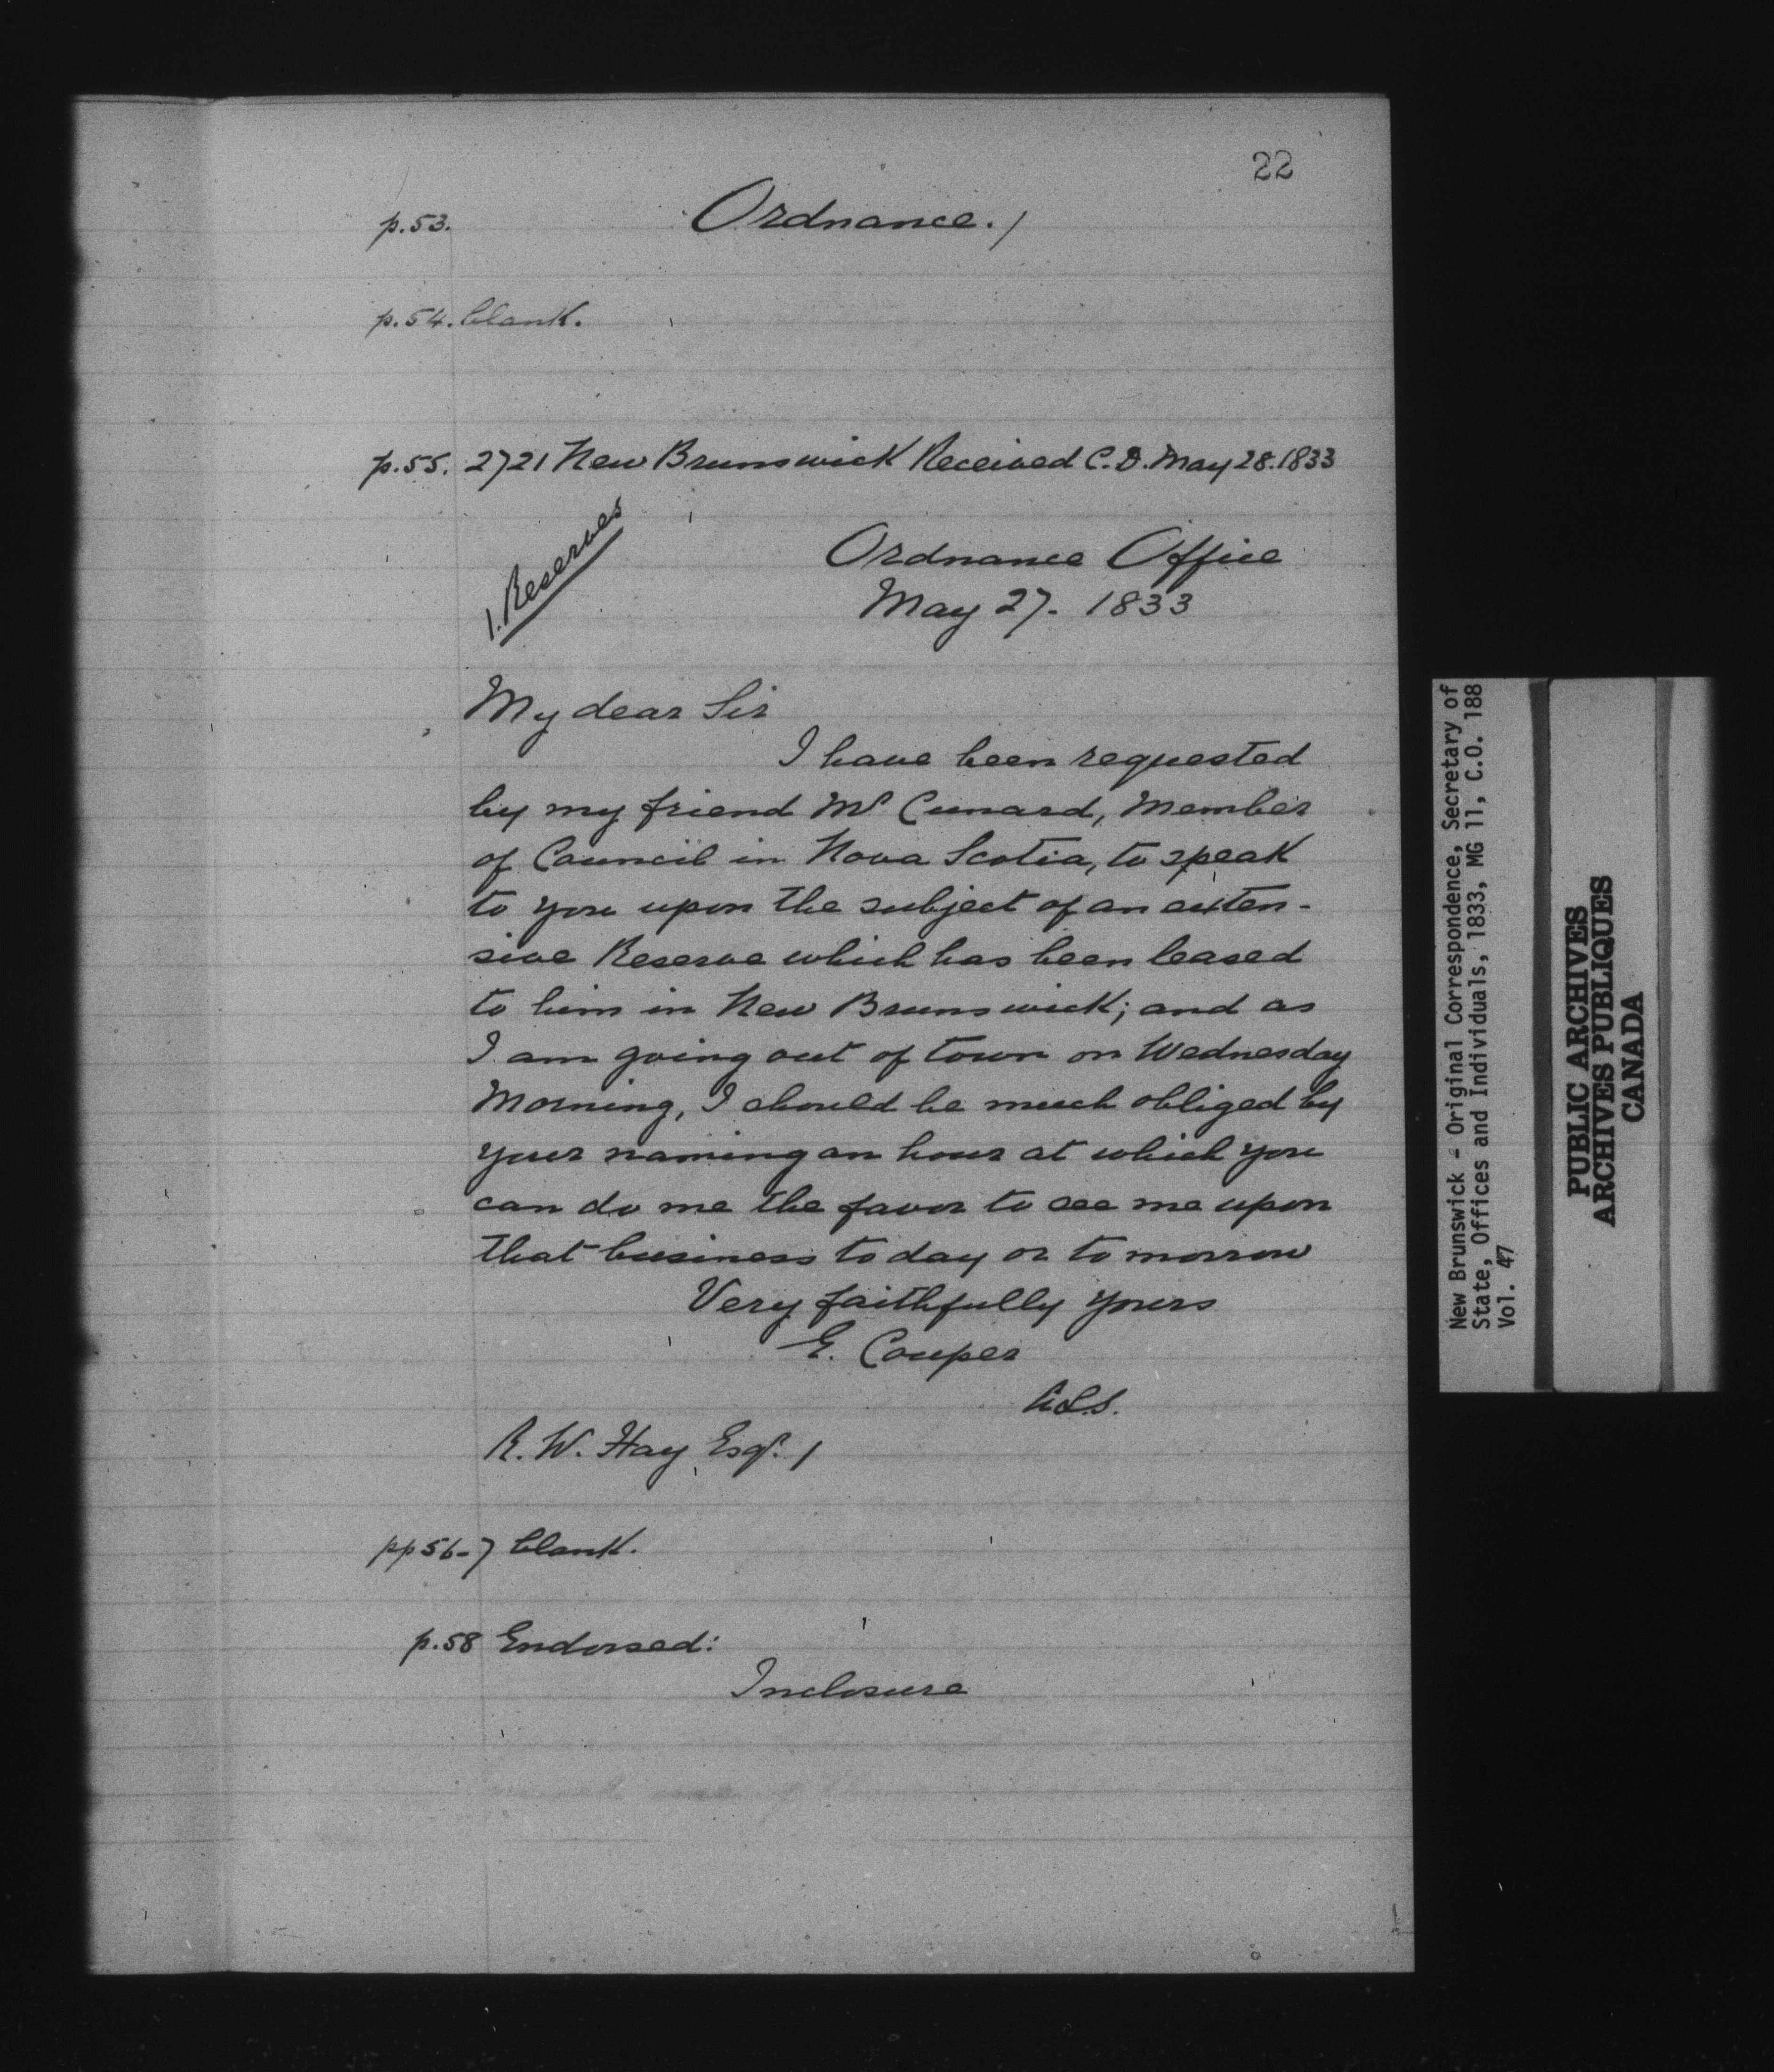 22
p.53. Ordnance./
p.54. blank.
p.55. 2721 New Brunswick Received C.D. May 28. 1833
1. Reserves
Ordnance Office
May 27. 1833
My dear Sir
I have been requested
by my friend Mr Cunard, Member
of Council in Nova Scotia, to speak
to you upon the subject of an exten-
sive Reserve which has been leased
to him in New Brunswick; and as
I am going out of town on Wednesday
Morning, I should be much obliged by
your naming an hour at which you
can do me the favor to see me upon
that business to day or to morrow
Very faithfully yours
E. Couper
A.L.S.
R. W. Hay Esqr. /
pp 56-7 blank.
p.58 Endorsed:
Inclosure
New Brunswick - Original Correspondence, Secretary of
State, Offices and Individuals, 1833, MG 11, C.O. 188
Vol. 47
PUBLIC ARCHIVES
ARCHIVES PUBLIQUES
CANADA